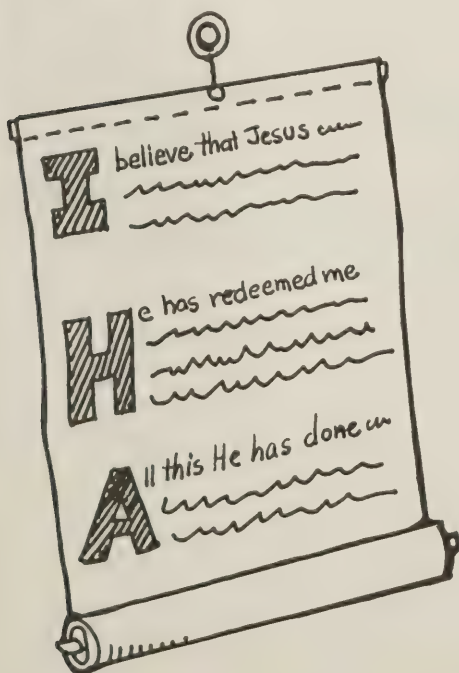 I believe that Jesus
He has redeemed me
All this He has done